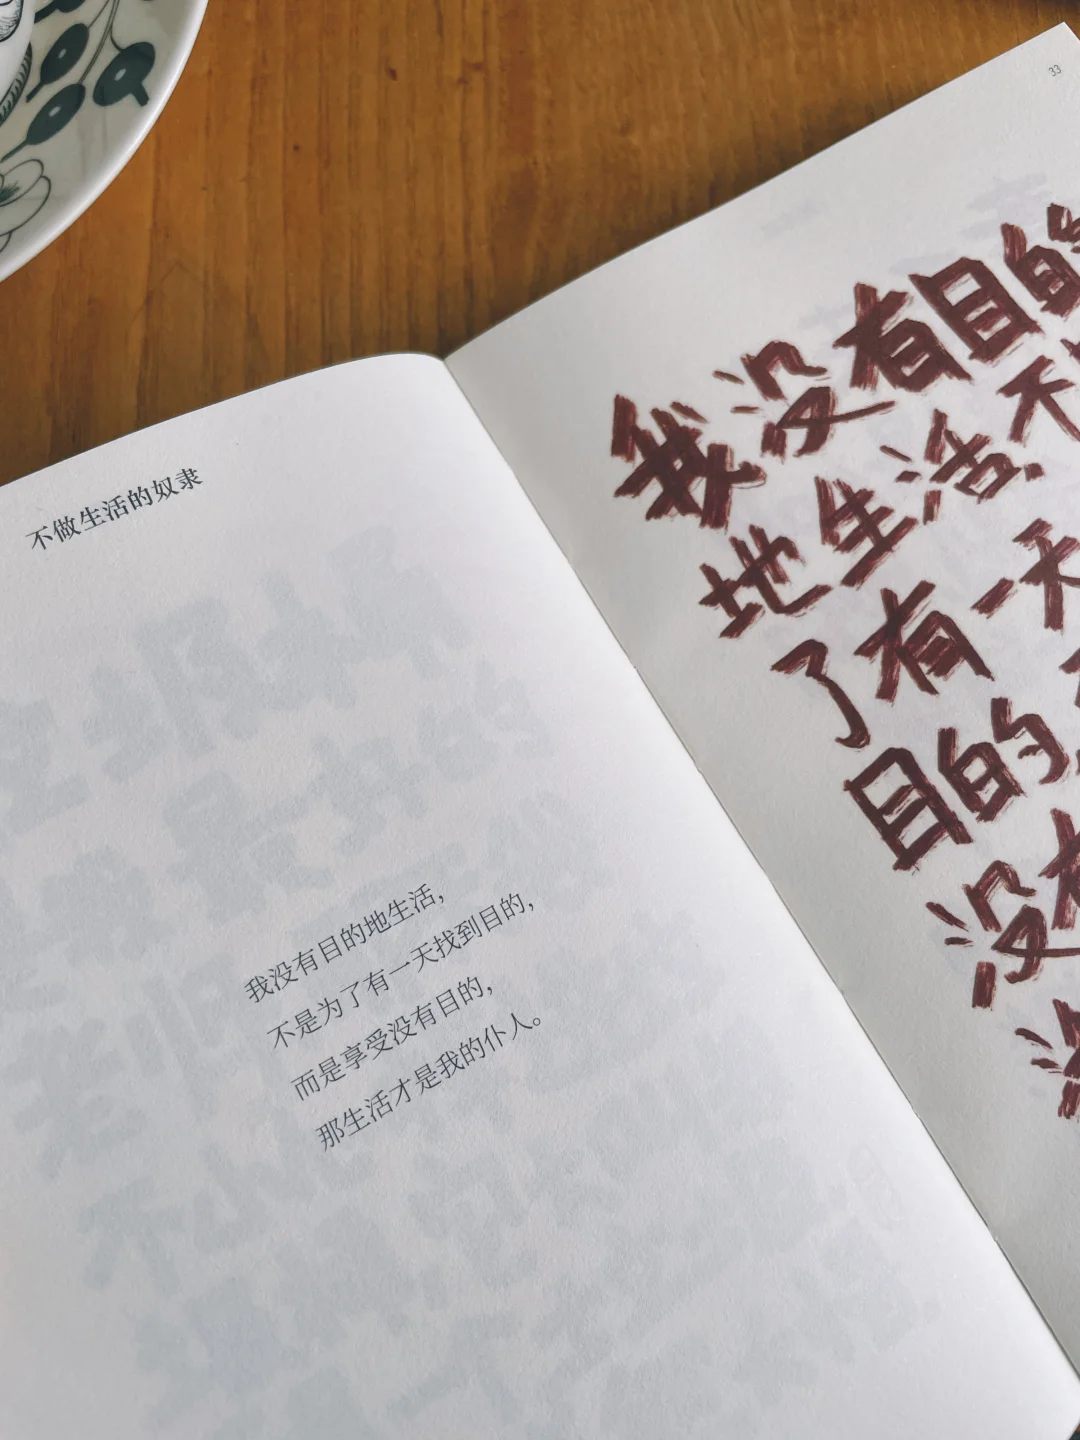 不做生活的奴隶
我没有目的地生活,
不是为了有一天找到目的,
而是享受没有目的,
那生活才是我的仆人。
33
我没有目的
地生活,不
了有一天
目的,
没有